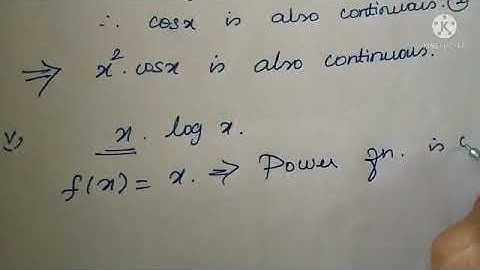 ∴ cosx is also continuous.
⇒ x². cosx is also continuous.
v, x. log x.
f(x) = x. ⇒ Power fn. is